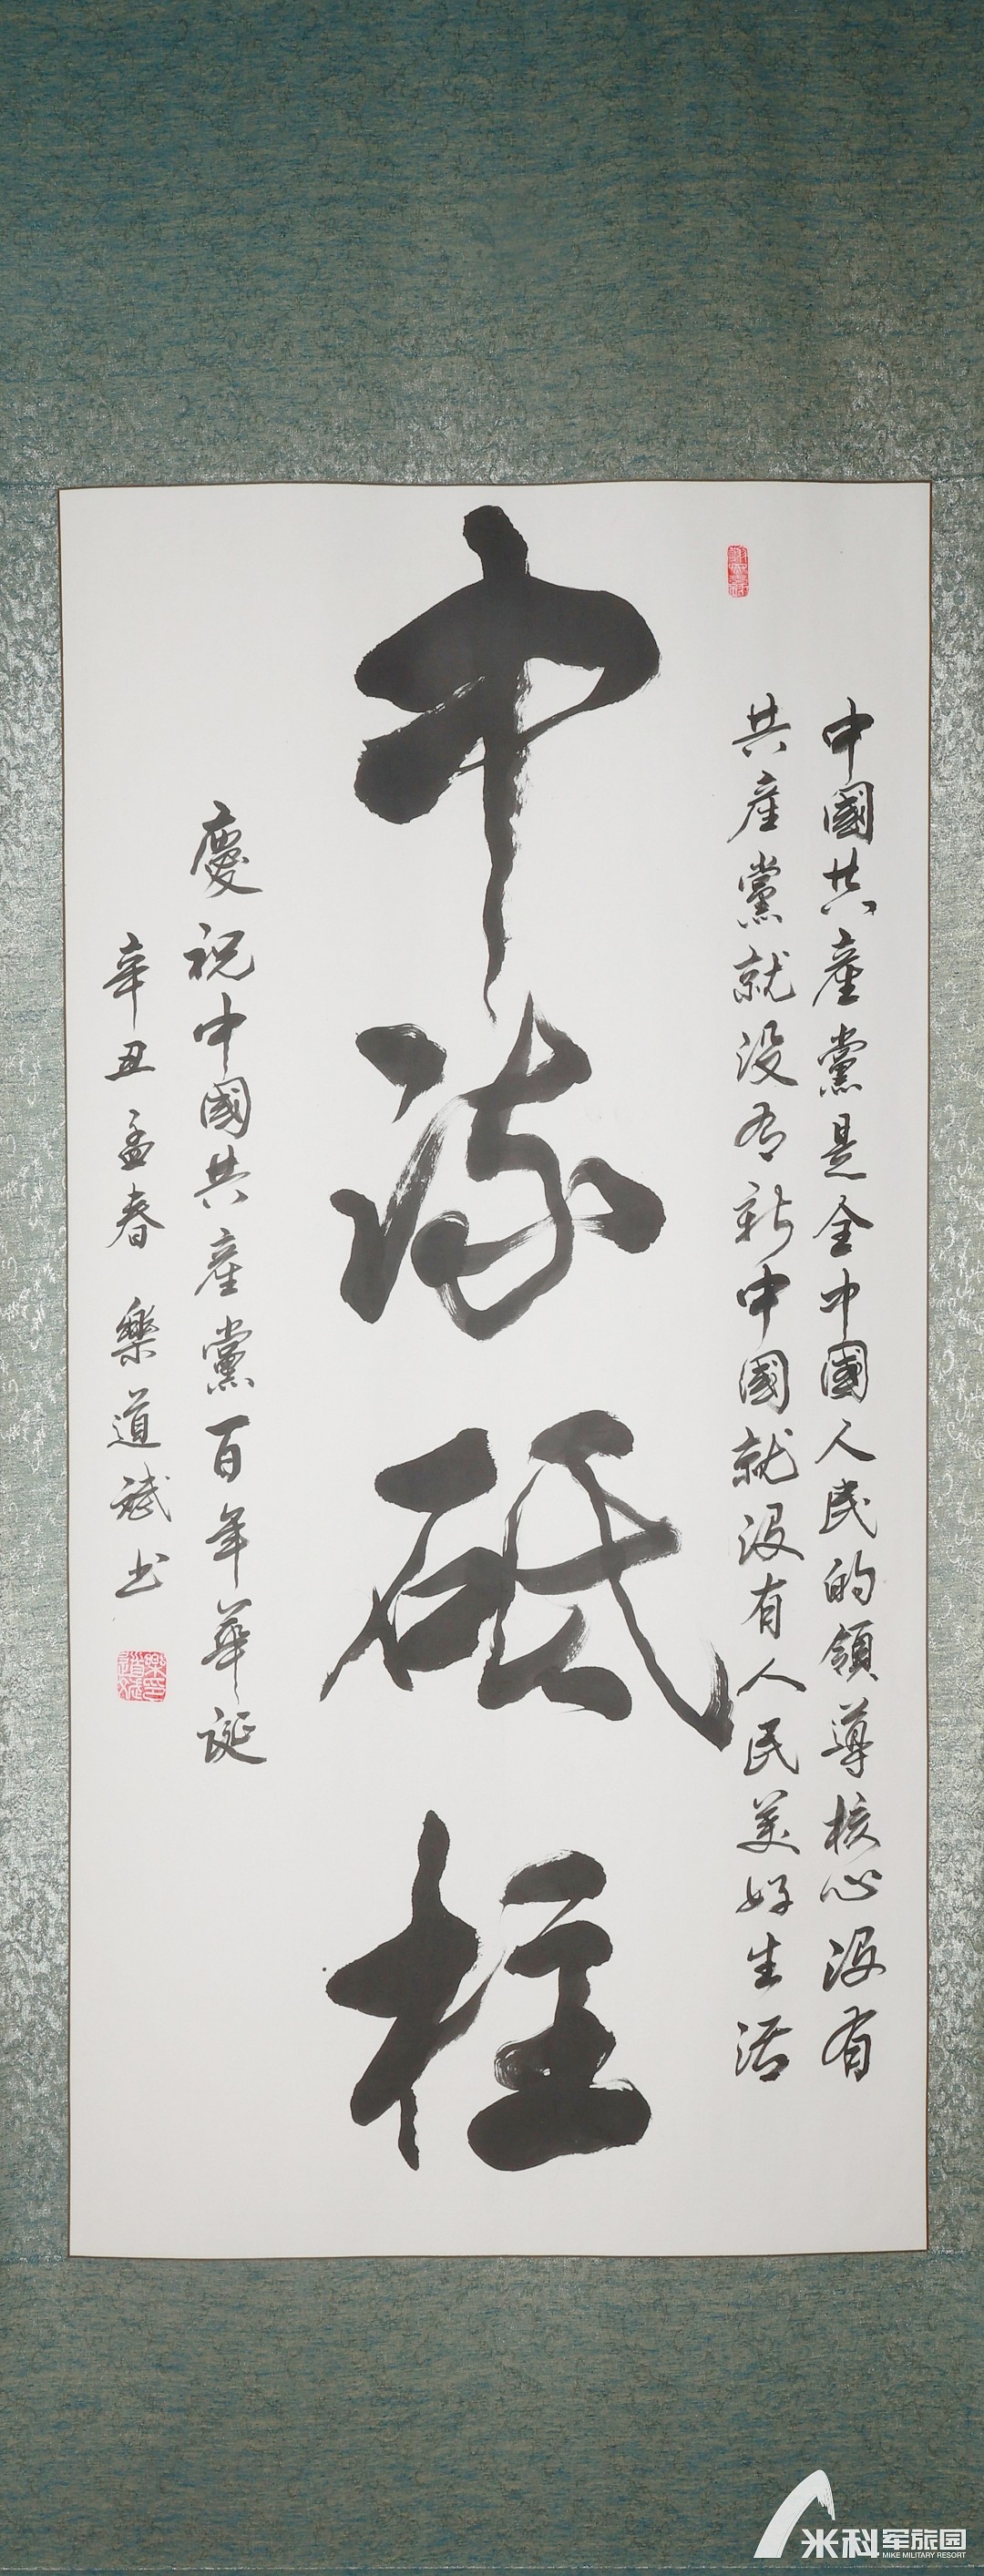 中國共產黨是全中國人民的領導核心沒有
共產黨就沒有新中國就沒有人民美好生活
中流砥柱
慶祝中國共產黨百年華誕
辛丑孟春 樂道斌书
米科军旅园
MIKE MILITARY RESORT